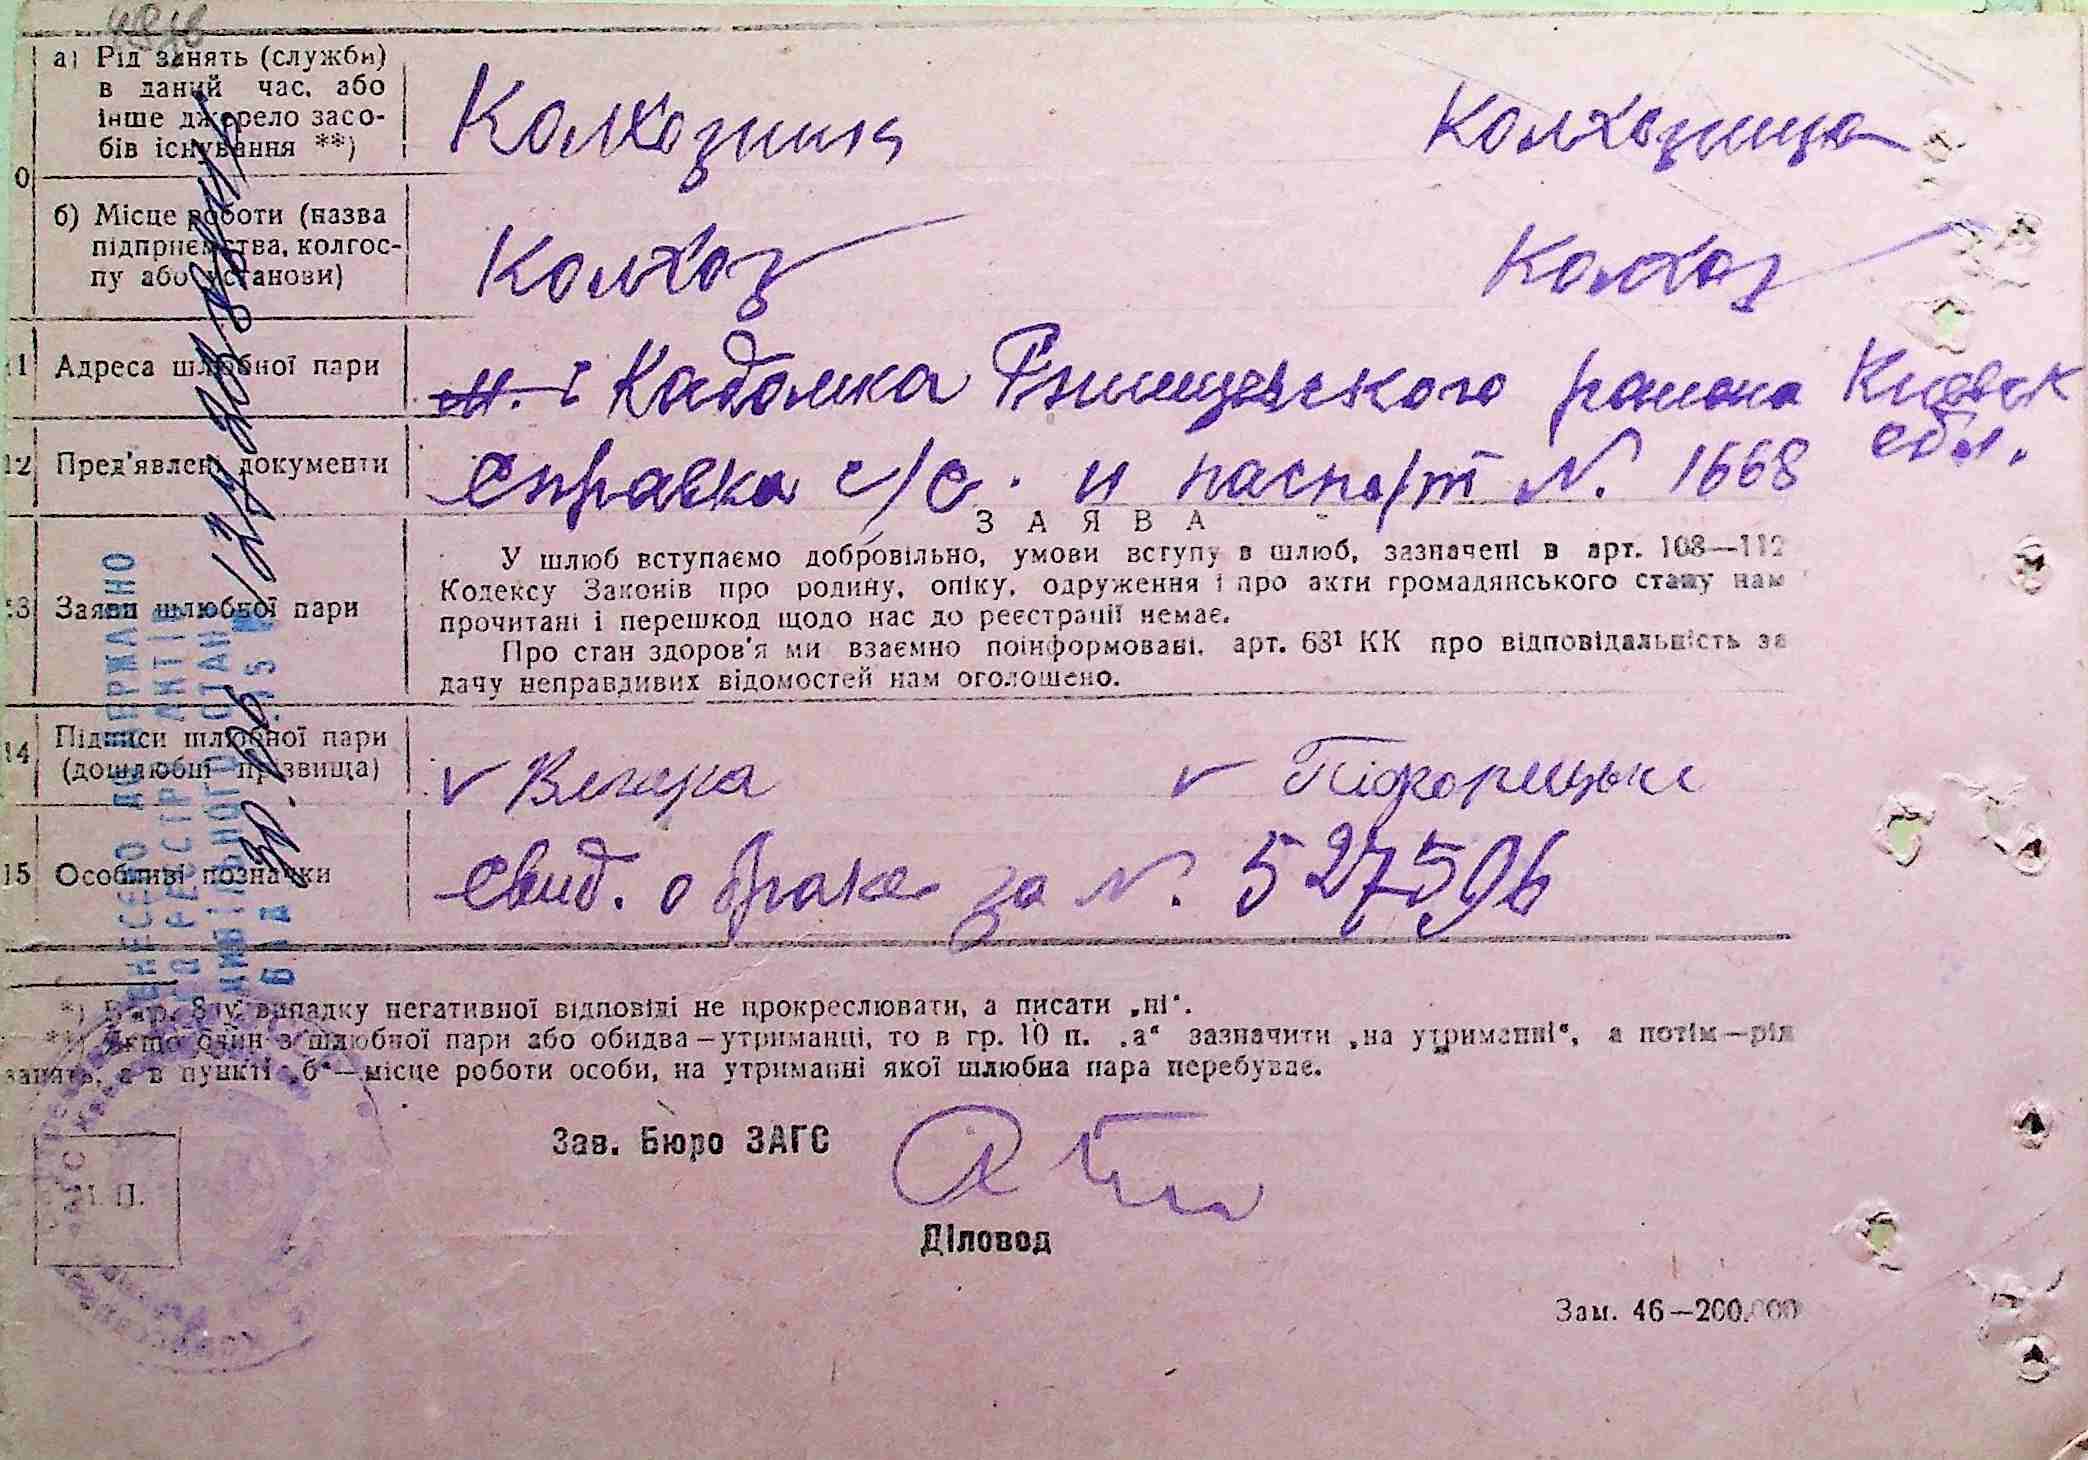 а) Рід занять (служби)
в даний час, або
інше джерело засо-
бів існування **)
Колхозник
Колхозница
0
б) Місце роботи (назва
підприємства, колгос-
пу або установи)
Колхоз
Колхоз
11 Адреса шлюбної пари
Кадомка Ржищевского района Киевск
обл.
12 Пред'явлені документи
Справка с/с. и паспорт N. 1668
ЗАЯВА
13 Заяви шлюбної пари
У шлюб вступаємо добровільно, умови вступу в шлюб, зазначені в арт. 108—112
Кодексу Законів про родину, опіку, одруження і про акти громадянського стану нам
прочитані і перешкод щодо нас до реєстрації немає.
Про стан здоров'я ми взаємно поінформовані, арт. 68¹ КК про відповідальність за
дачу неправдивих відомостей нам оголошено.
14 Підписи шлюбної пари
(дошлюбні прізвища)
15 Особливі позначки
Свид. о браке за N. 527596
*) В гр. 8 у випадку негативної відповіді не прокреслювати, а писати „ні“.
**) Якщо один з шлюбної пари або обидва—утриманці, то в гр. 10 п. „а“ зазначити „на утриманні“, а потім—рід
занять, а в пункті „б“—місце роботи особи, на утриманні якої шлюбна пара перебуває.
Зав. Бюро ЗАГС
М. П.
Діловод
Зам. 46—200.000